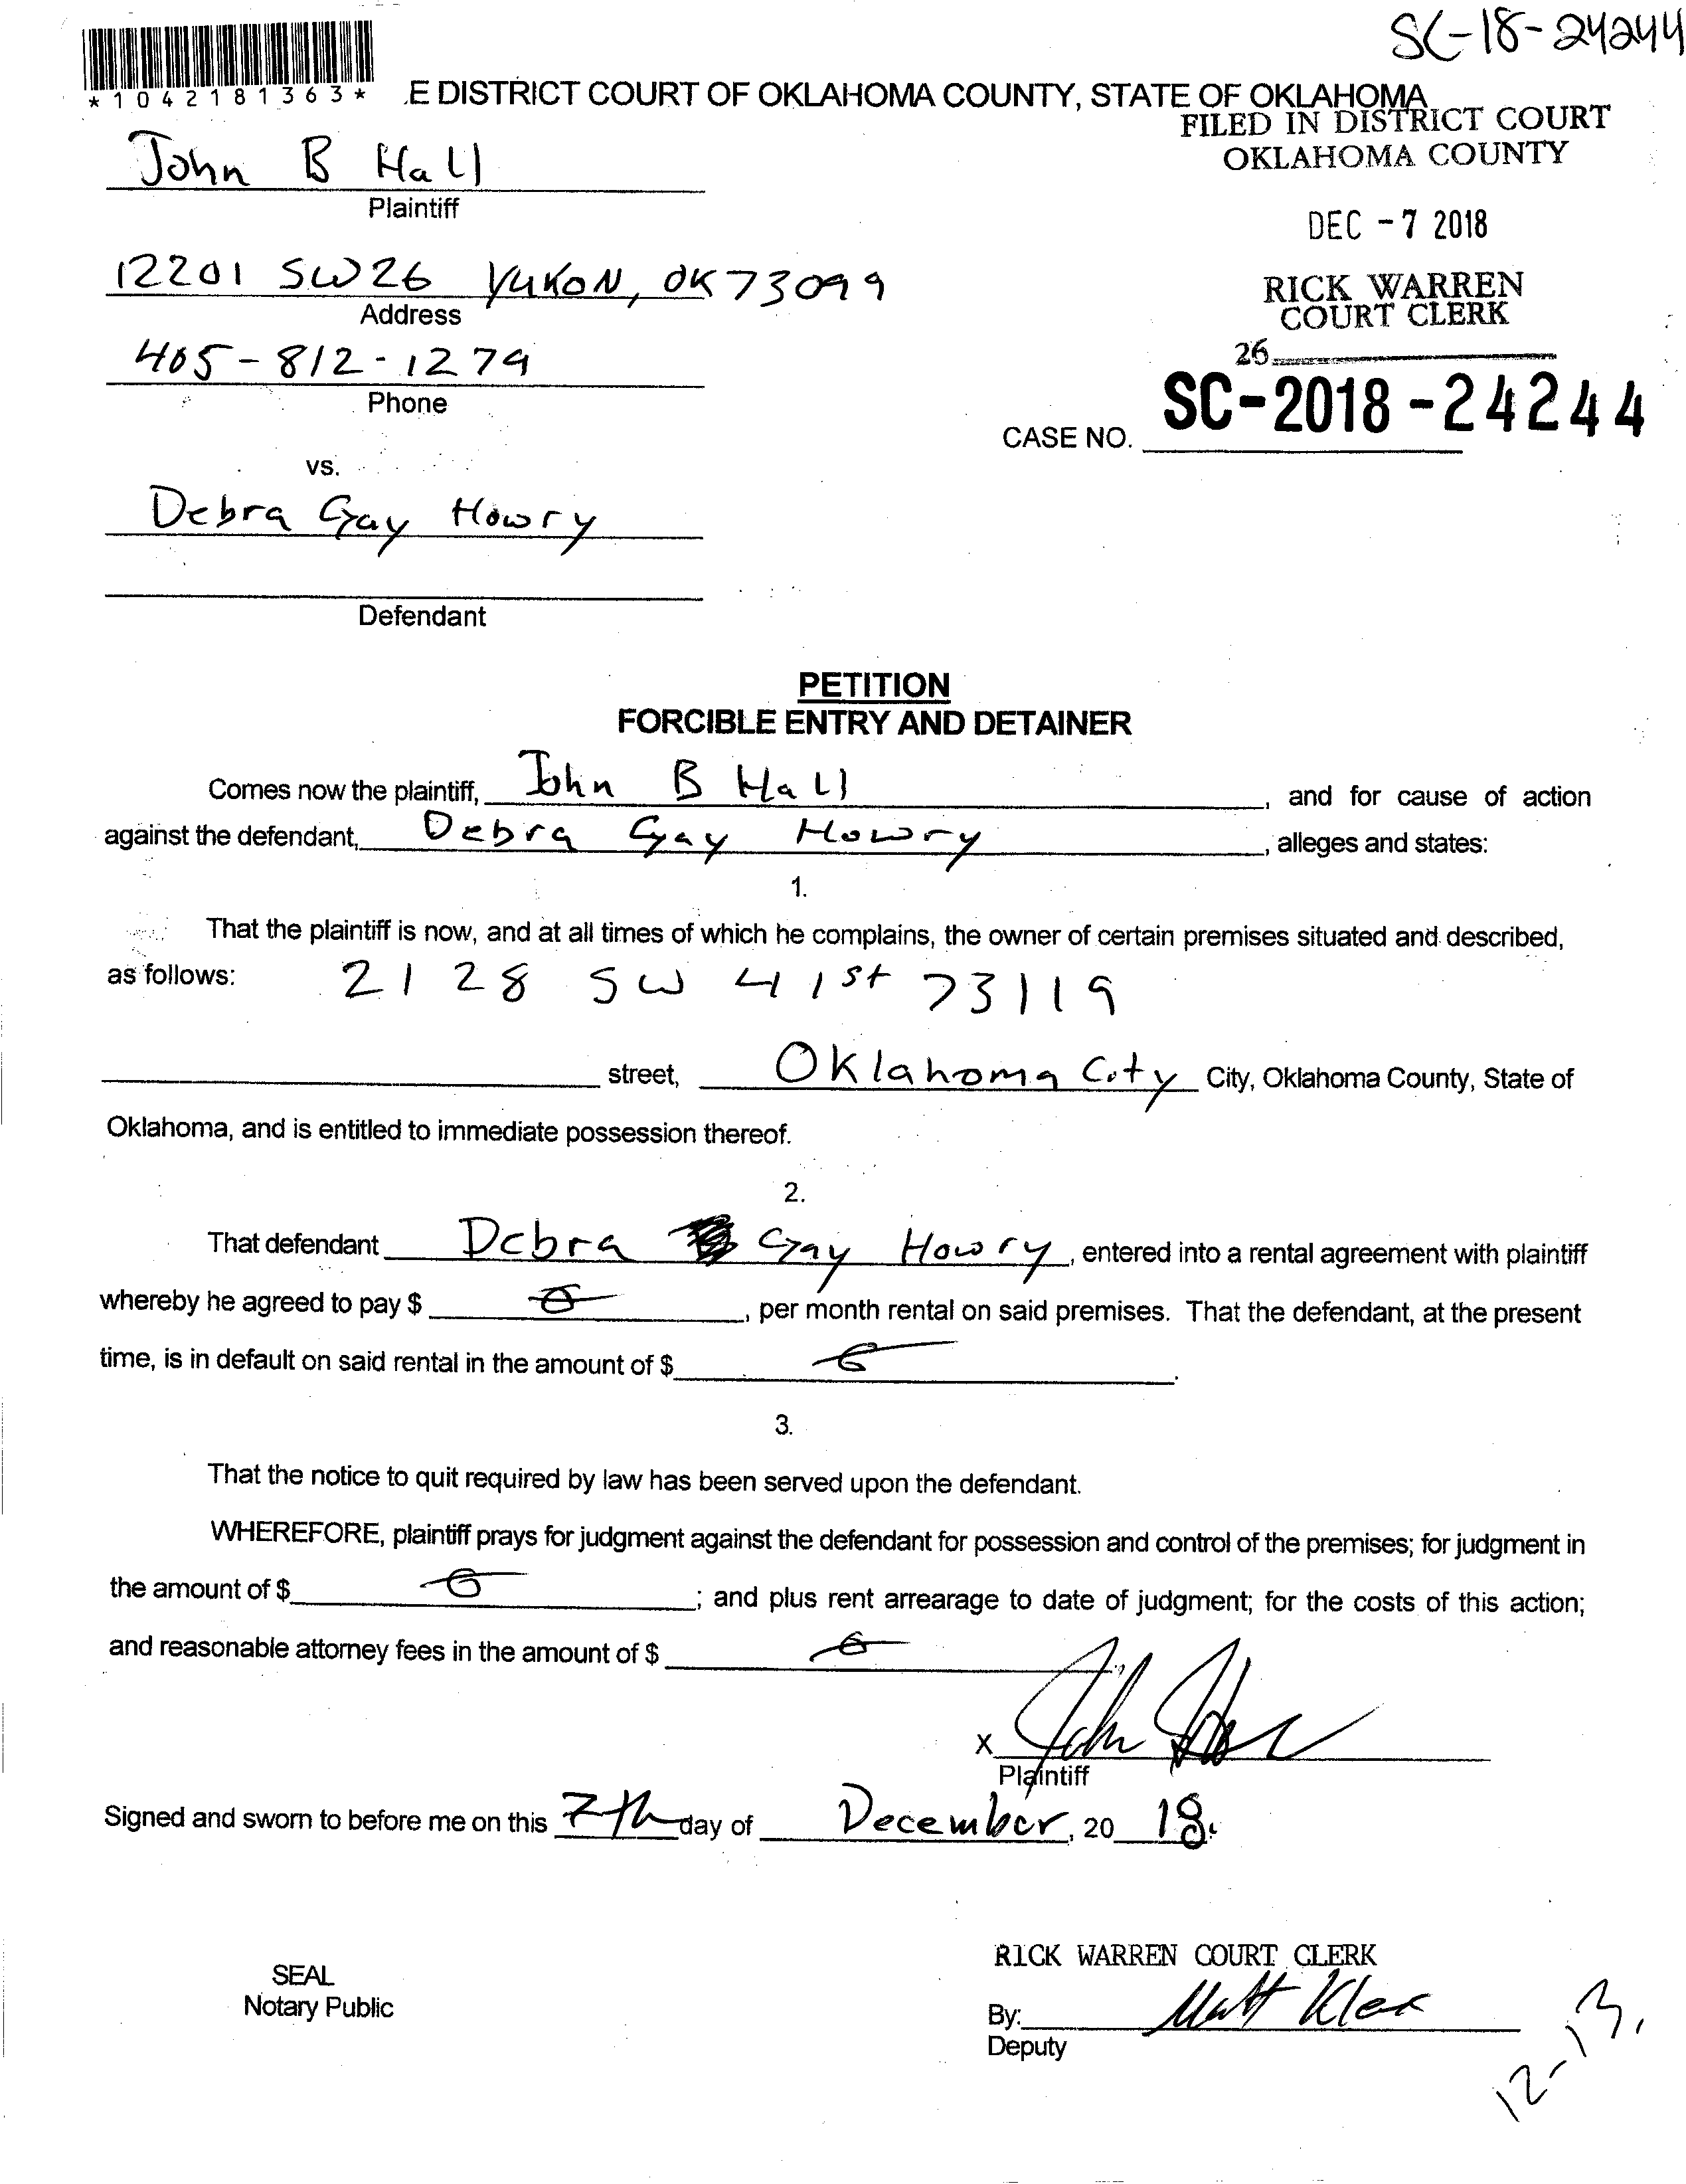 SC-18-24244
*1042181363*
.E DISTRICT COURT OF OKLAHOMA COUNTY, STATE OF OKLAHOMA
FILED IN DISTRICT COURT
OKLAHOMA COUNTY
John B Hall
Plaintiff
DEC -7 2018
12201 SW 26 YUKON, OK 73099
Address
RICK WARREN
COURT CLERK
405-812-1279
Phone
26
SC-2018-24244
CASE NO.
vs.
Debra Gay Howry
Defendant
PETITION
FORCIBLE ENTRY AND DETAINER
Comes now the plaintiff, John B Hall, and for cause of action
against the defendant, Debra Gay Howry, alleges and states:
1.
That the plaintiff is now, and at all times of which he complains, the owner of certain premises situated and described,
as follows: 2128 SW 41st 73119
street, Oklahoma City City, Oklahoma County, State of
Oklahoma, and is entitled to immediate possession thereof.
2.
That defendant Debra Gay Howry, entered into a rental agreement with plaintiff
whereby he agreed to pay $ 0, per month rental on said premises. That the defendant, at the present
time, is in default on said rental in the amount of $ 0.
3.
That the notice to quit required by law has been served upon the defendant.
WHEREFORE, plaintiff prays for judgment against the defendant for possession and control of the premises; for judgment in
the amount of $ 0; and plus rent arrearage to date of judgment; for the costs of this action;
and reasonable attorney fees in the amount of $ 0
X John Hall
Plaintiff
Signed and sworn to before me on this 7th day of December, 20 18.
RICK WARREN COURT CLERK
SEAL
Notary Public
By: Matt
Deputy
12-13,